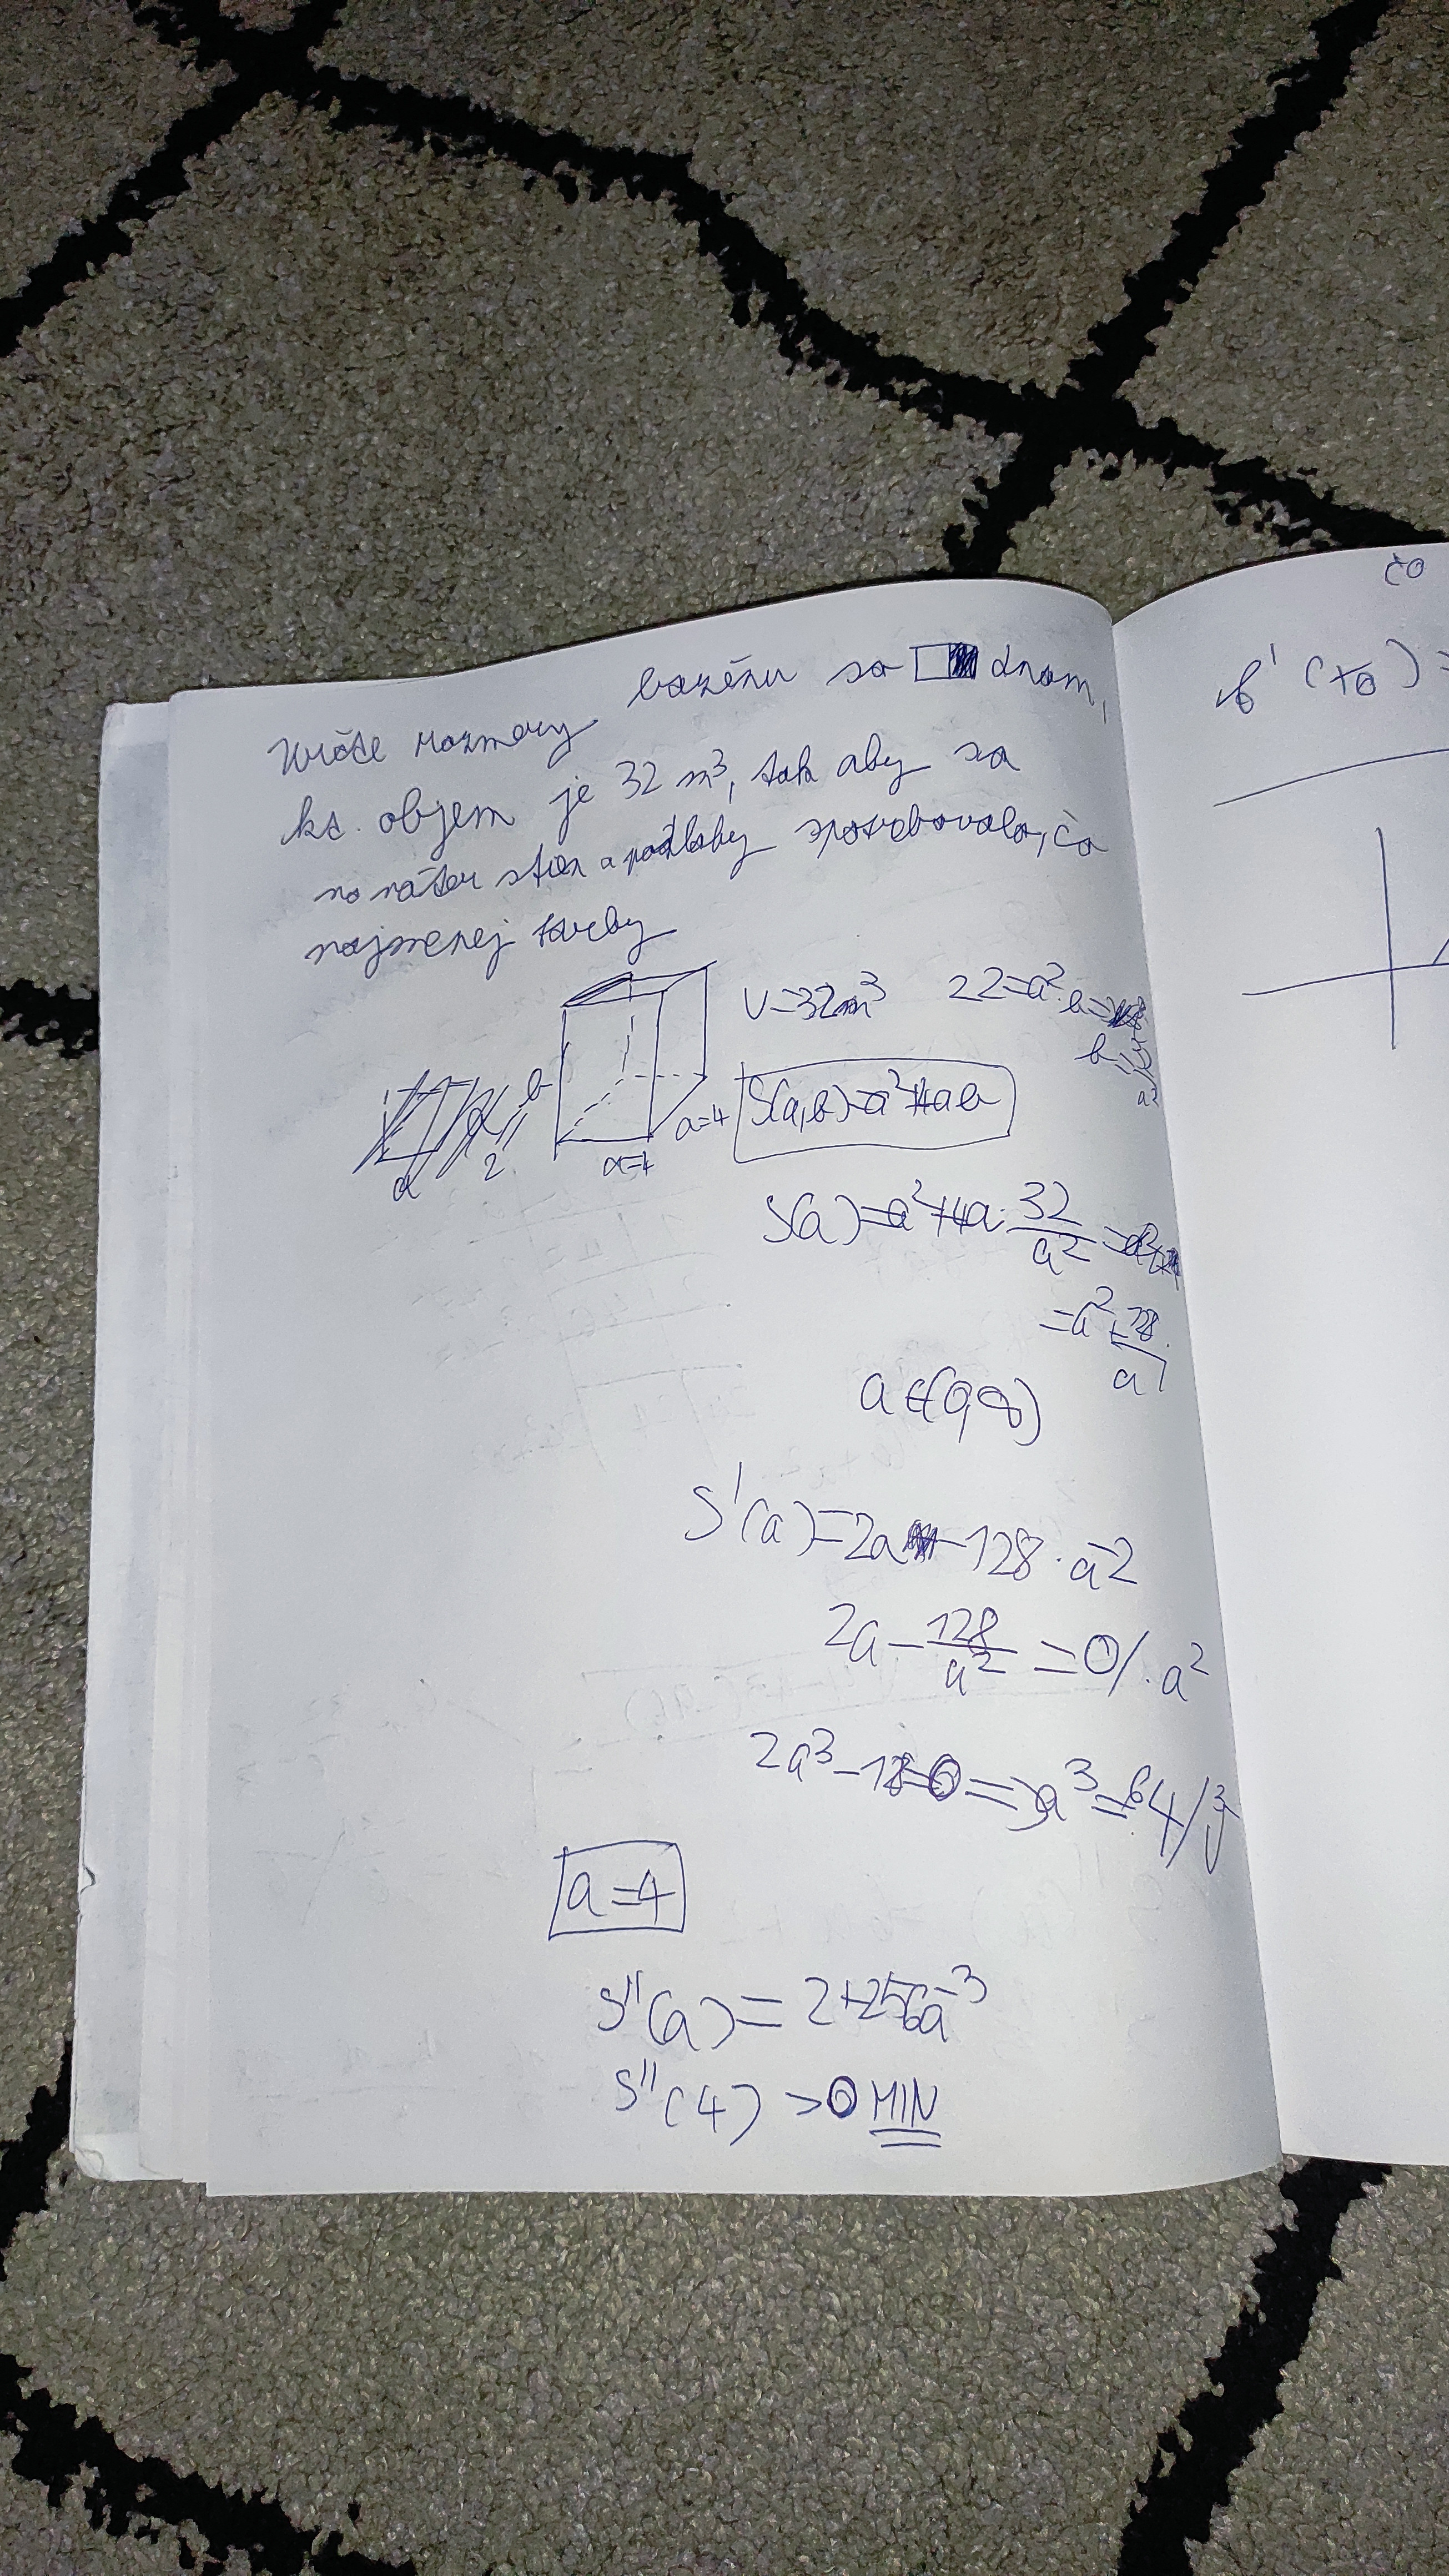 Určte rozmery bazénu so □ dnom,
kt. objem je 32 m³, tak aby sa
na náter stien a podlahy spotrebovalo, čo
najmenej farby
V=32m³ 22=a².b=
b=
a²
b=
2
a
a=4
a=4
S(a,b)=a²+4ab
S(a)=a²+4a·32/a²=
=a²+128/a
a∈(0,∞)
S'(a)=2a-128·a⁻²
2a-128/a²=0/·a²
2a³-128=0=>a³=64/∛
a=4
S''(a)=2+256a⁻³
S''(4)>0 MIN
čo